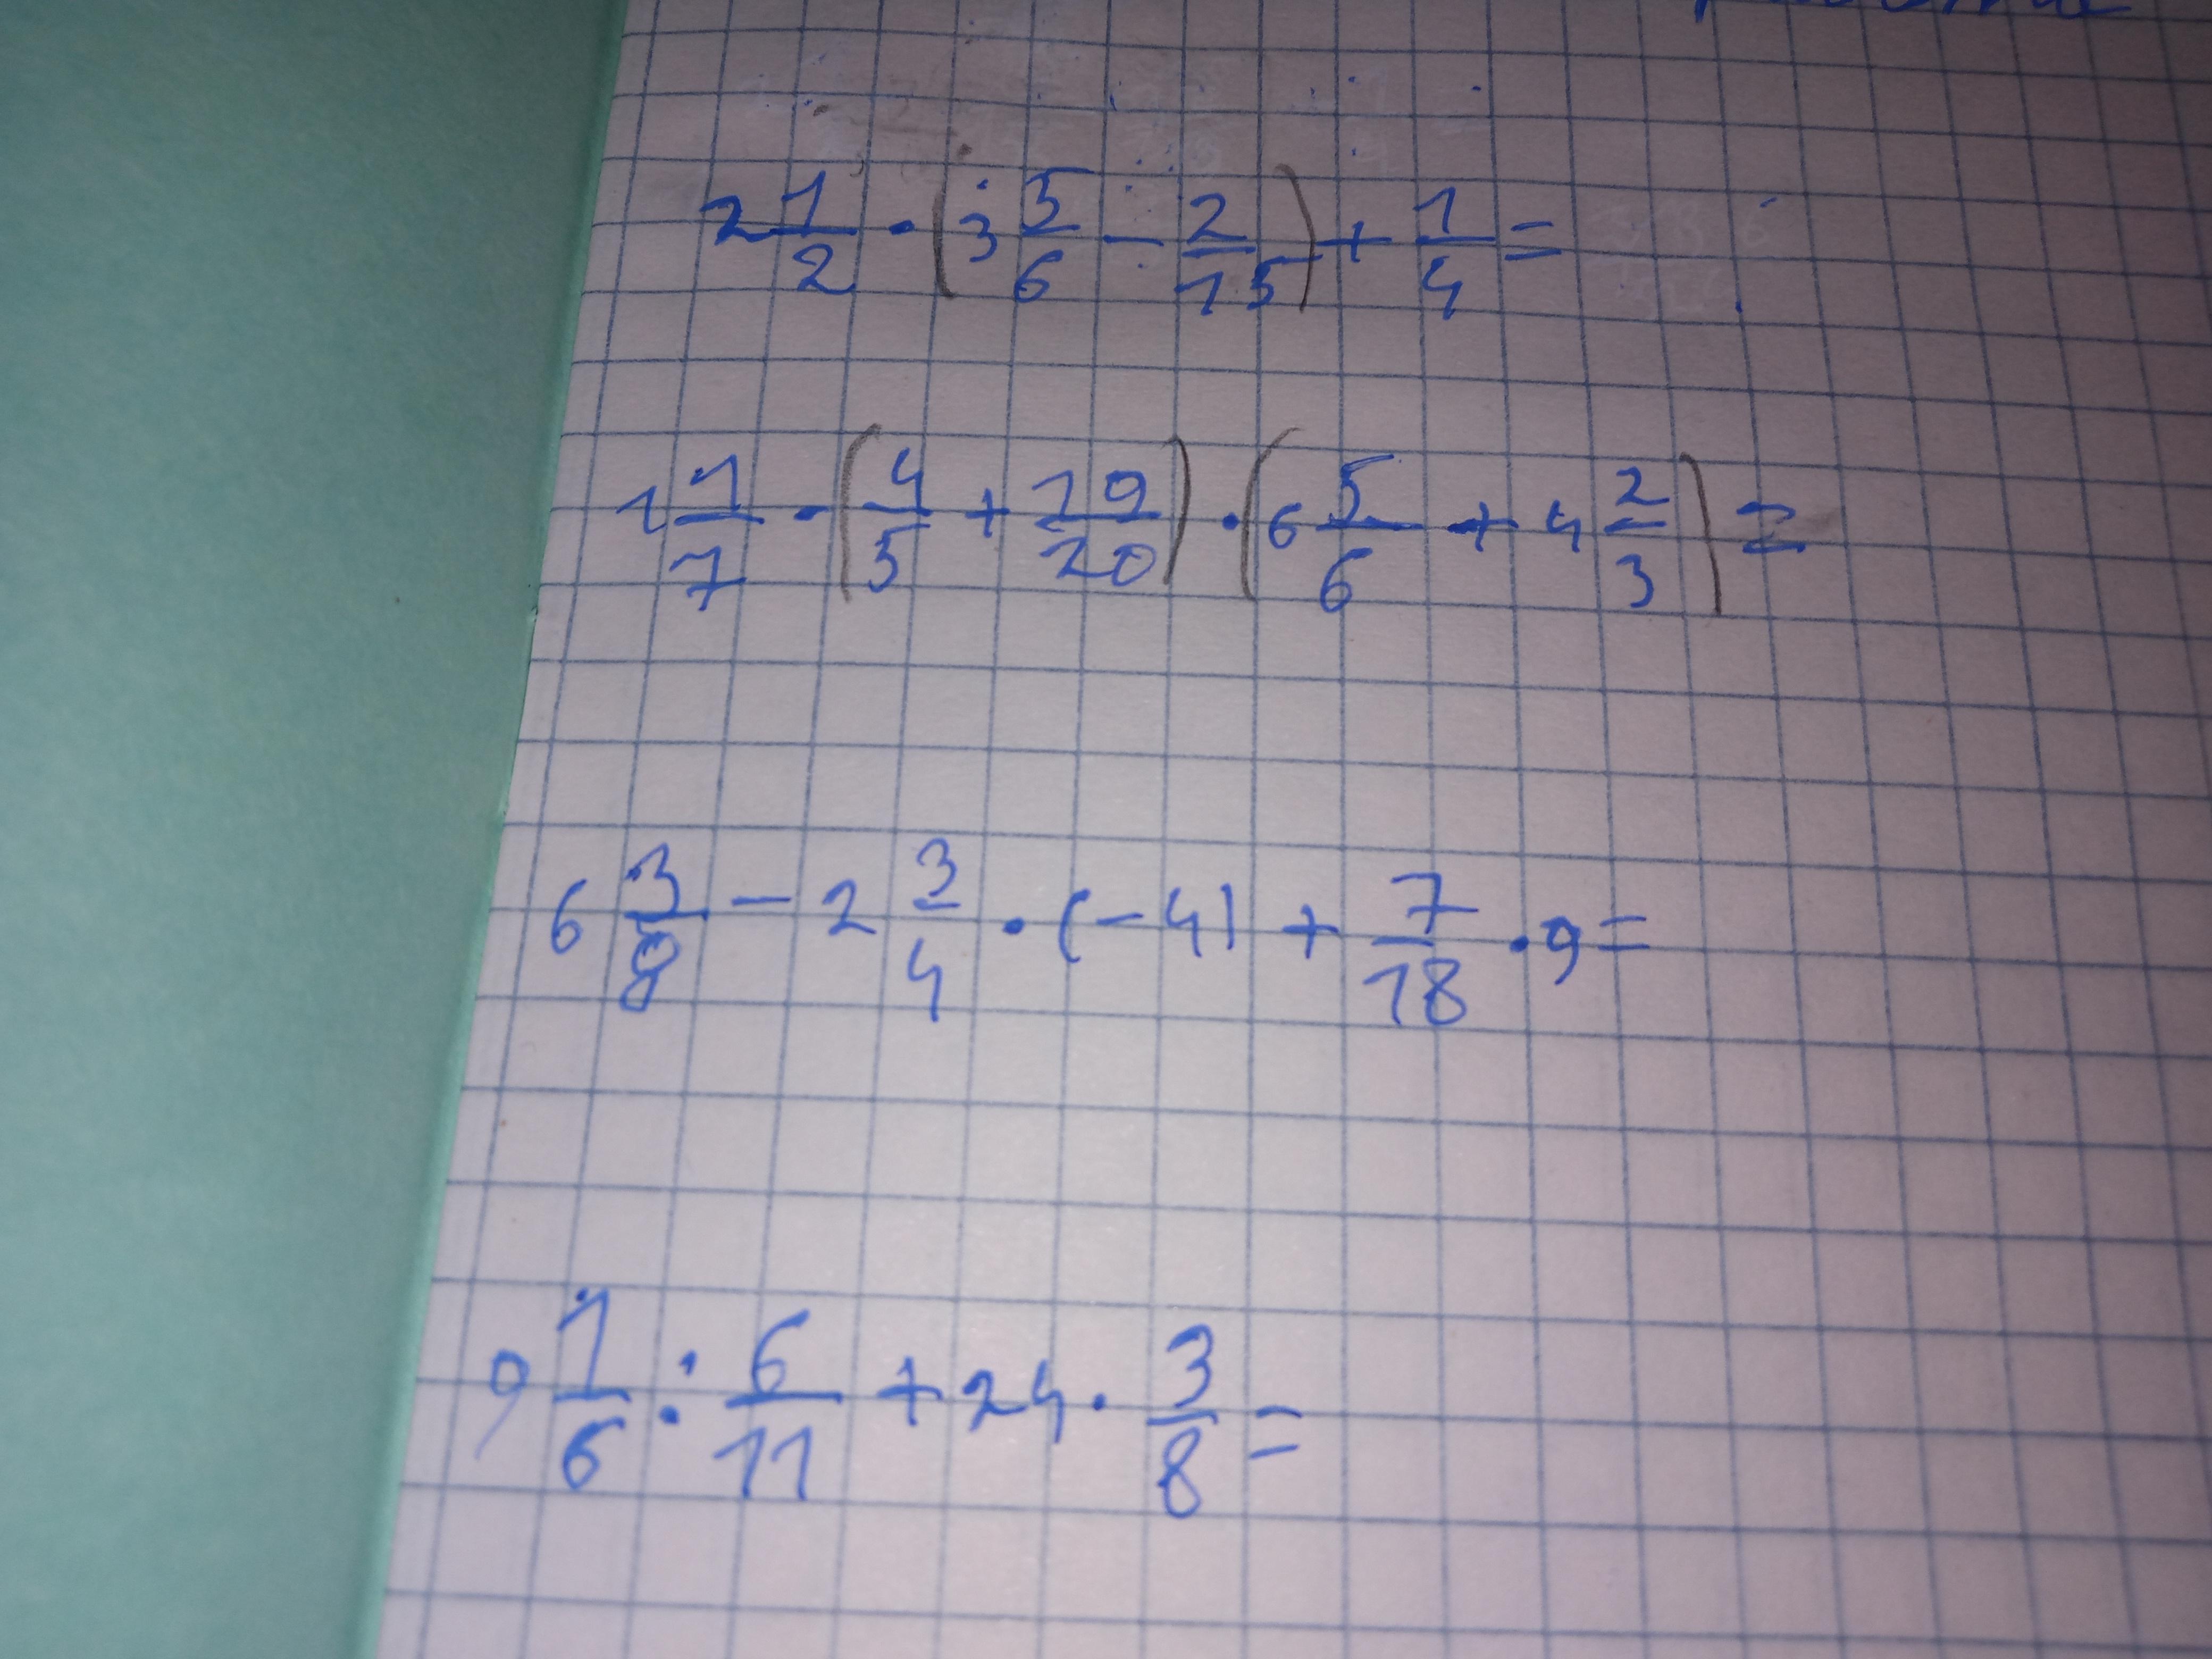 2 1/2 · (3 5/6 − 2/15) + 1/4 =
1 1/7 · (4/5 + 19/20) · (6 5/6 + 4 2/3) =
6 3/8 − 2 3/4 · (−4) + 7/18 · 9 =
9 1/6 : 6/11 + 24 · 3/8 =